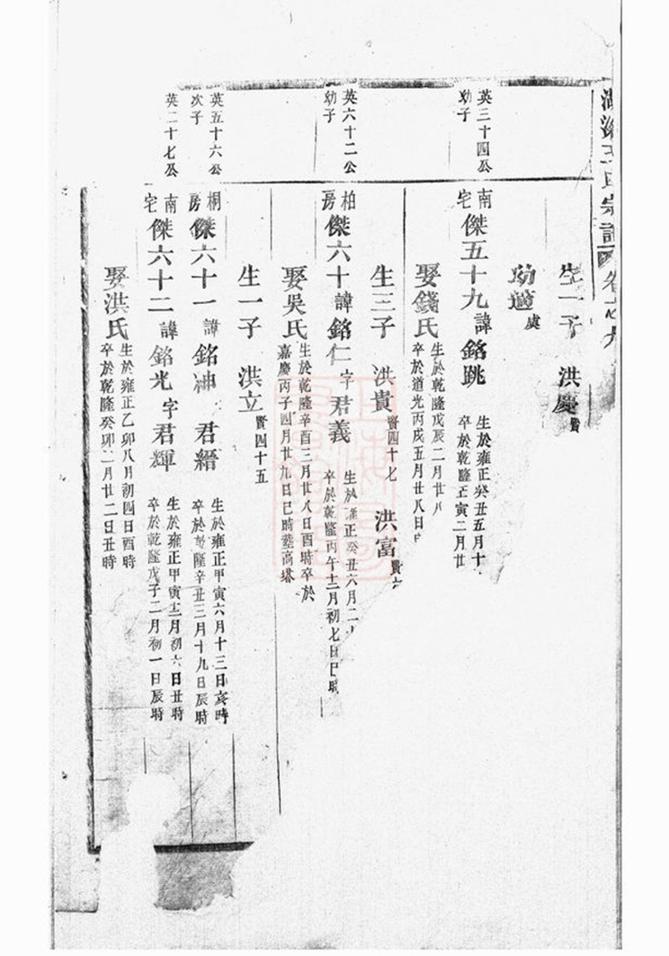 氏宗譜 卷之九
生一子 洪慶
適虞
英三十四公
幼子
南宅 傑五十九 諱銘跳
生於雍正癸丑五月十
卒於乾隆壬寅二月廿
娶錢氏
生於乾隆戊辰二月廿八
卒於道光丙戌五月廿八日
生三子 洪貴 賢四十七 洪富
英六十二公
幼子
柏房 傑六十 諱銘仁 字君義
生於雍正癸丑六月二十
卒於乾隆丙午十二月初七日巳時
娶吳氏
生於乾隆辛酉三月廿八日酉時卒於
嘉慶丙子四月廿九日巳時葬高塔
生一子 洪立 賢四十五
英五十六公
次子
桐房 傑六十一 諱銘紳 君縉
生於雍正甲寅六月十三日亥時
卒於乾隆辛丑三月十九日辰時
英二十七公
南宅 傑六十二 諱銘光 字君輝
生於雍正甲寅十二月初六日丑時
卒於乾隆戊子二月初一日辰時
娶洪氏
生於雍正乙卯八月初四日酉時
卒於乾隆癸卯二月廿二日丑時